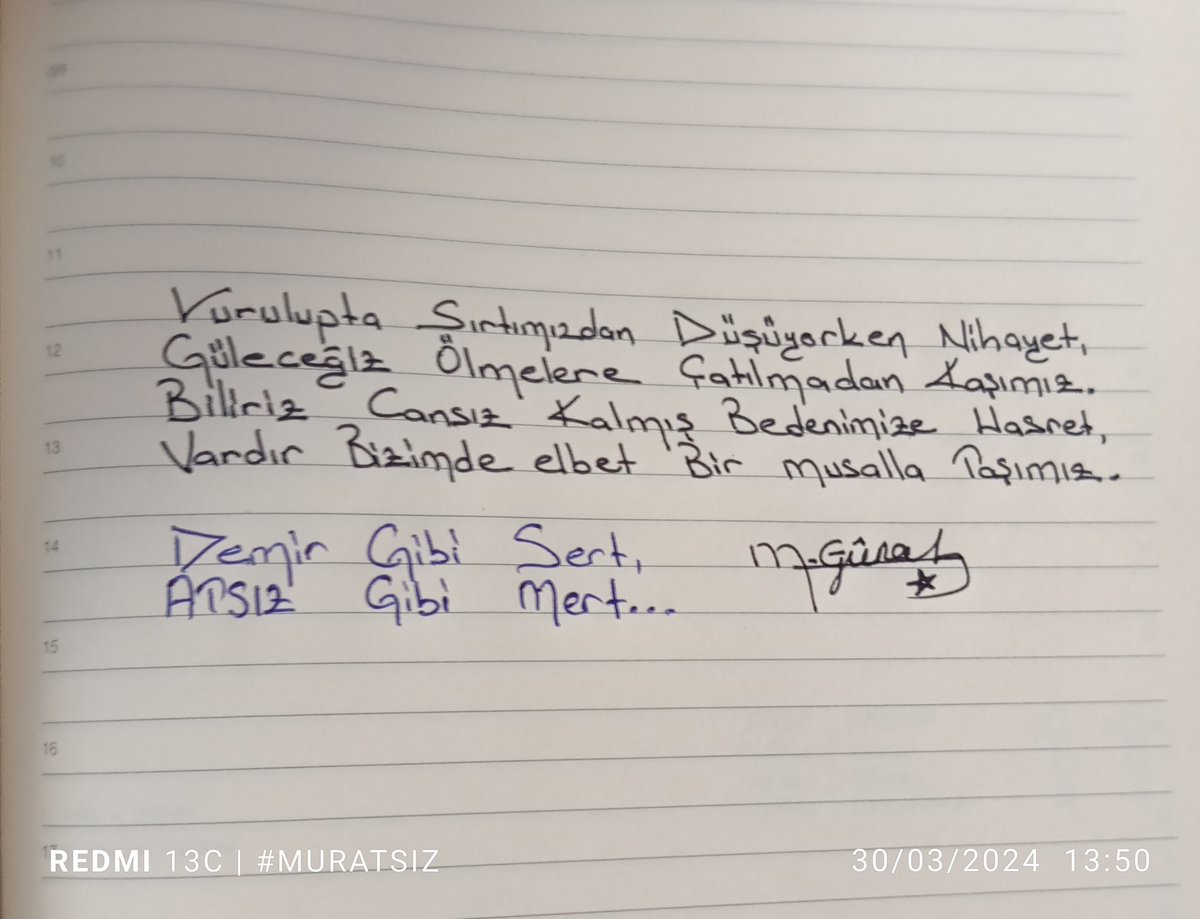 11
Vurulupta Sırtımızdan Düşüyorken Nihayet,
12
Güleceğiz Ölmelere Çatılmadan Kaşımız.
Biliriz Cansız Kalmış Bedenimize Hasret,
13
Vardır Bizimde elbet Bir musalla Taşımız.
14
Demir Gibi Sert,
M.Günat
ATSIZ Gibi Mert...
15
16
REDMI 13C | #MURATSIZ
30/03/2024 13:50